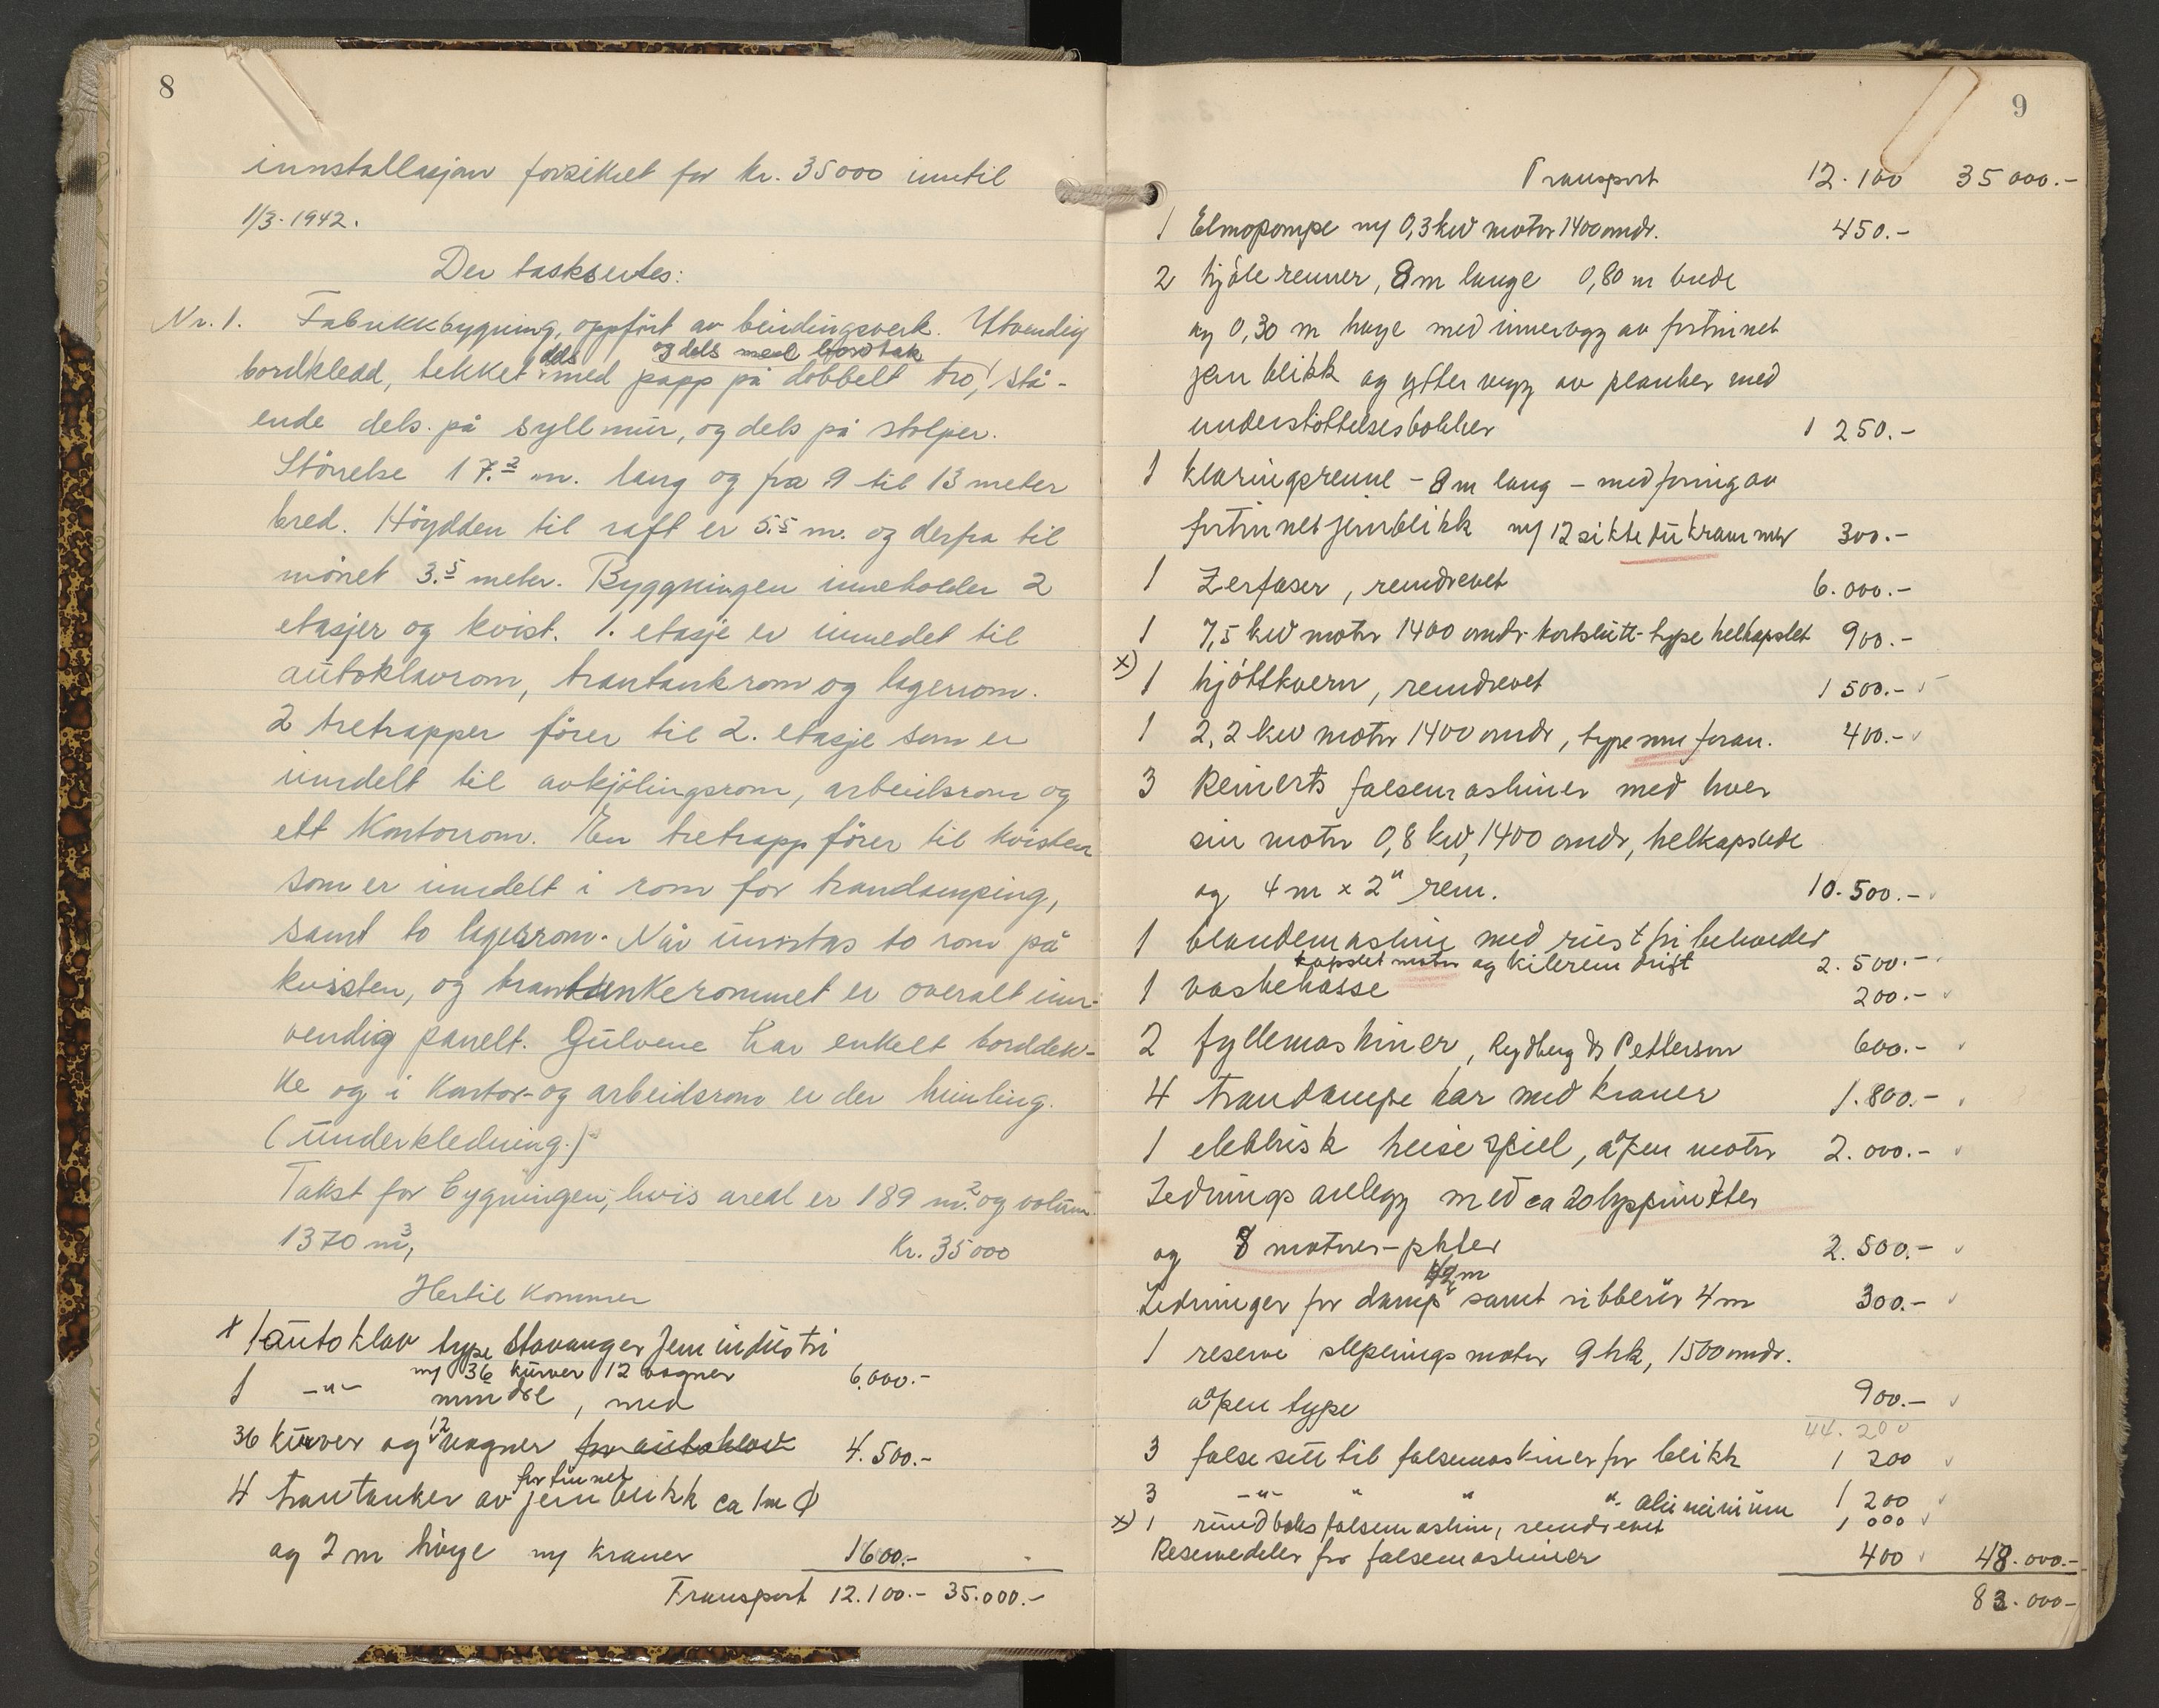 8
innstallasjon forsikret for kr. 35000 inntil
1/3-1942.
Der taksertes:
Nr. 1. Fabrikkbygning, oppført av bindingsverk. Utvendig
dels og dels med bordtak
bordkledd, tekket med papp på dobbelt tro, stå-
ende dels på syllmur, og dels på stolper.
Störrelse 17.2 m. lang og fra 9 til 13 meter
bred. Höydden til raft er 5.5 m. og derfra til
mönet 3.5 meter. Byggningen inneholder 2
etasjer og kvist. 1. etasje er innredet til
autoklavrom, trantankrom og lagerrom.
2 tretrapper förer til 2. etasje som er
inndelt til avkjölingsrom, arbeidsrom og
ett Kontorrom. En tretrapp förer til kvisten
som er inndelt i rom for trandamping,
samt to lagerrom. Når unntas to rom på
kvisten, og trantankerommet er overalt inn-
vendig panelt. Gulvene har enkelt borddek-
ke og i Kontor- og arbeidsrom er der himling.
(Underkledning.)
Takst for bygningen, hvis areal er 189 m.2 og volum
1370 m3, Kr. 35000
Hertil kommer
x 1 autoklav type Stavanger Jernindustri
m/ 36 kurver 12 vogner 6.000.-
1 -"- mindre, med
36 kurver og 12 vogner for autoklav 4.500.-
fortinnet
4 trantanker av jernblikk ca 1m Ø
og 2 m höye m/ kraner 1600.-
Transport 12.100.- 35.000.-
9
Transport 12.100 35000.-
1 Elmopompe m/ 0,3 kw motor 1400 omdr. 450.-
2 kjølerenner, 8m lange 0,80 m brede
og 0,30 m høye med innervegg av fortinnet
jernblikk og yttervegg av planker med
understøttelsesbokker 1 250.-
1 klaringsrenne - 8m lang - med foring av
fortinnet jernblikk m/ 12 siktedukrammer 300.-
1 Zerfaser, remdrevet 6.000.-
1 7,5 kw motor 1400 omdr. kortslutt-type helkapslet 900.-
x) 1 kjøttkvern, remdrevet 1 500.-
1 2,2 kw motor 1400 omdr, type som foran. 400.-
3 Reinerts falsemaskiner med hver
sin motor 0,8 kw, 1400 omdr, helkapslede
og 4 m x 2" rem. 10.500.-
1 blandemaskin med rustfri beholder
kapslet motor og kilerem drift 2.500.-
1 vaskekasse 200.-
2 fyllemaskiner, Rydberg & Petterson 600.-
4 trandampe kar med kraner 1.800.-
1 elektrisk heisespill, åpen motor 2.000.-
Lednings anlegg med ca 20 lyspunkter
og 8 motor-pkter 2.500.-
42 m
Ledninger for damp samt ribberör 4m 300.-
1 reserve sleperings motor 9 hk, 1500 omdr.
åpen type 900.-
44.200
3 false sett til falsemaskiner for blikk 1 200
3 -"- " " " aluminium 1 200
x) 1 rundboks falsemaskin, remdrevet 1 000
Reservedeler for falsemaskiner 400 48.000.-
83.000-